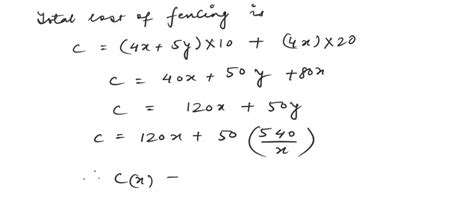 Total cost of fencing is
C = (4x + 5y) × 10 + (4x) × 20
C = 40x + 50y + 80x
C = 120x + 50y
C = 120x + 50 (540/x)
∴ C(x) =